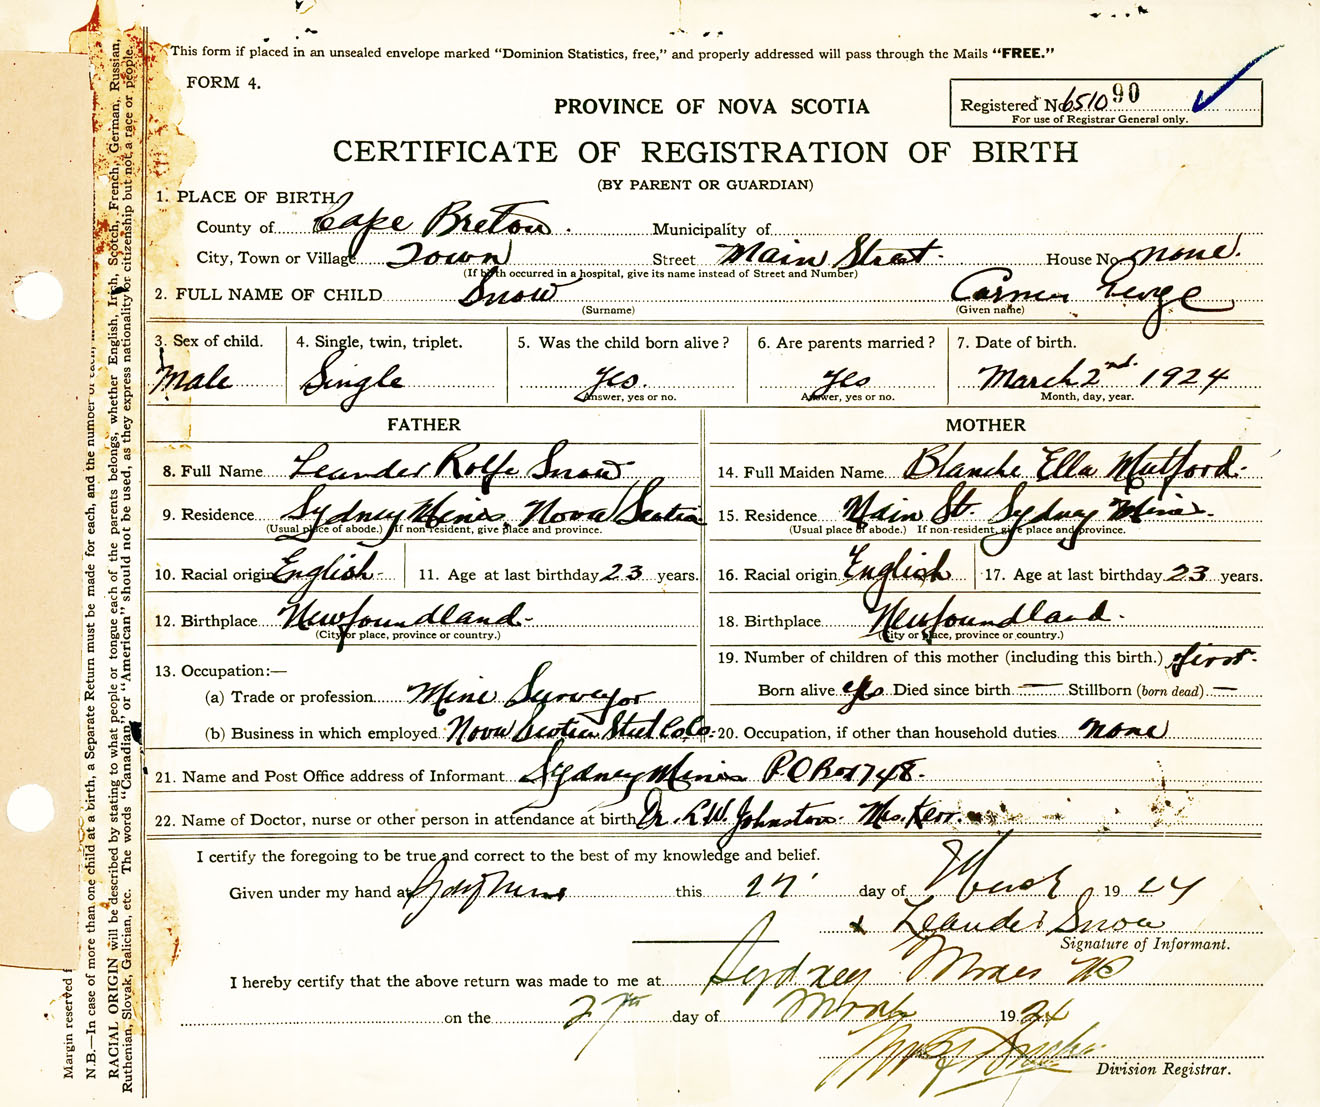 This form if placed in an unsealed envelope marked "Dominion Statistics, free," and properly addressed will pass through the Mails "FREE."
FORM 4.
Registered No. 6510 90
For use of Registrar General only.
PROVINCE OF NOVA SCOTIA
CERTIFICATE OF REGISTRATION OF BIRTH
(BY PARENT OR GUARDIAN)
1. PLACE OF BIRTH
County of Cape Breton. Municipality of
City, Town or Village Town Street Main Street. House No. none.
(If birth occurred in a hospital, give its name instead of Street and Number)
2. FULL NAME OF CHILD Snow Carmen George
(Surname) (Given name)
3. Sex of child. 4. Single, twin, triplet. 5. Was the child born alive? 6. Are parents married? 7. Date of birth.
Male Single Yes. Yes March 2nd. 1924
Answer, yes or no. Answer, yes or no. Month, day, year.
FATHER MOTHER
8. Full Name Leander Rolfe Snow 14. Full Maiden Name Blanche Ella Mutford.
9. Residence Sydney Mines, Nova Scotia 15. Residence Main St. Sydney Mines.
(Usual place of abode.) If non-resident, give place and province. (Usual place of abode.) If non-resident, give place and province.
10. Racial origin English 11. Age at last birthday 23 years. 16. Racial origin English 17. Age at last birthday 23 years.
12. Birthplace Newfoundland. 18. Birthplace Newfoundland.
(City or place, province or country.) (City or place, province or country.)
13. Occupation:— 19. Number of children of this mother (including this birth.) first.
(a) Trade or profession Mine Surveyor Born alive yes Died since birth — Stillborn (born dead) —
(b) Business in which employed Nova Scotia Steel Co. 20. Occupation, if other than household duties none
21. Name and Post Office address of Informant Sydney Mines P.O Box 748.
22. Name of Doctor, nurse or other person in attendance at birth Dr. L.W. Johnstone. Mrs. Kerr.
I certify the foregoing to be true and correct to the best of my knowledge and belief.
Given under my hand at Syd. Mines this 27 day of March 1924
x Leander Snow
Signature of Informant.
I hereby certify that the above return was made to me at Sydney Mines NS
on the 27th day of March 1924
Division Registrar.
Margin reserved f
N.B.—In case of more than one child at a birth, a Separate Return must be made for each, and the number of each, in
RACIAL ORIGIN will be described by stating to what people or tongue each of the parents belongs, whether English, Irish, Scotch, French, German, Russian,
Ruthenian, Slovak, Galician, etc. The words "Canadian" or "American" should not be used, as they express nationality or citizenship but not a race or people.